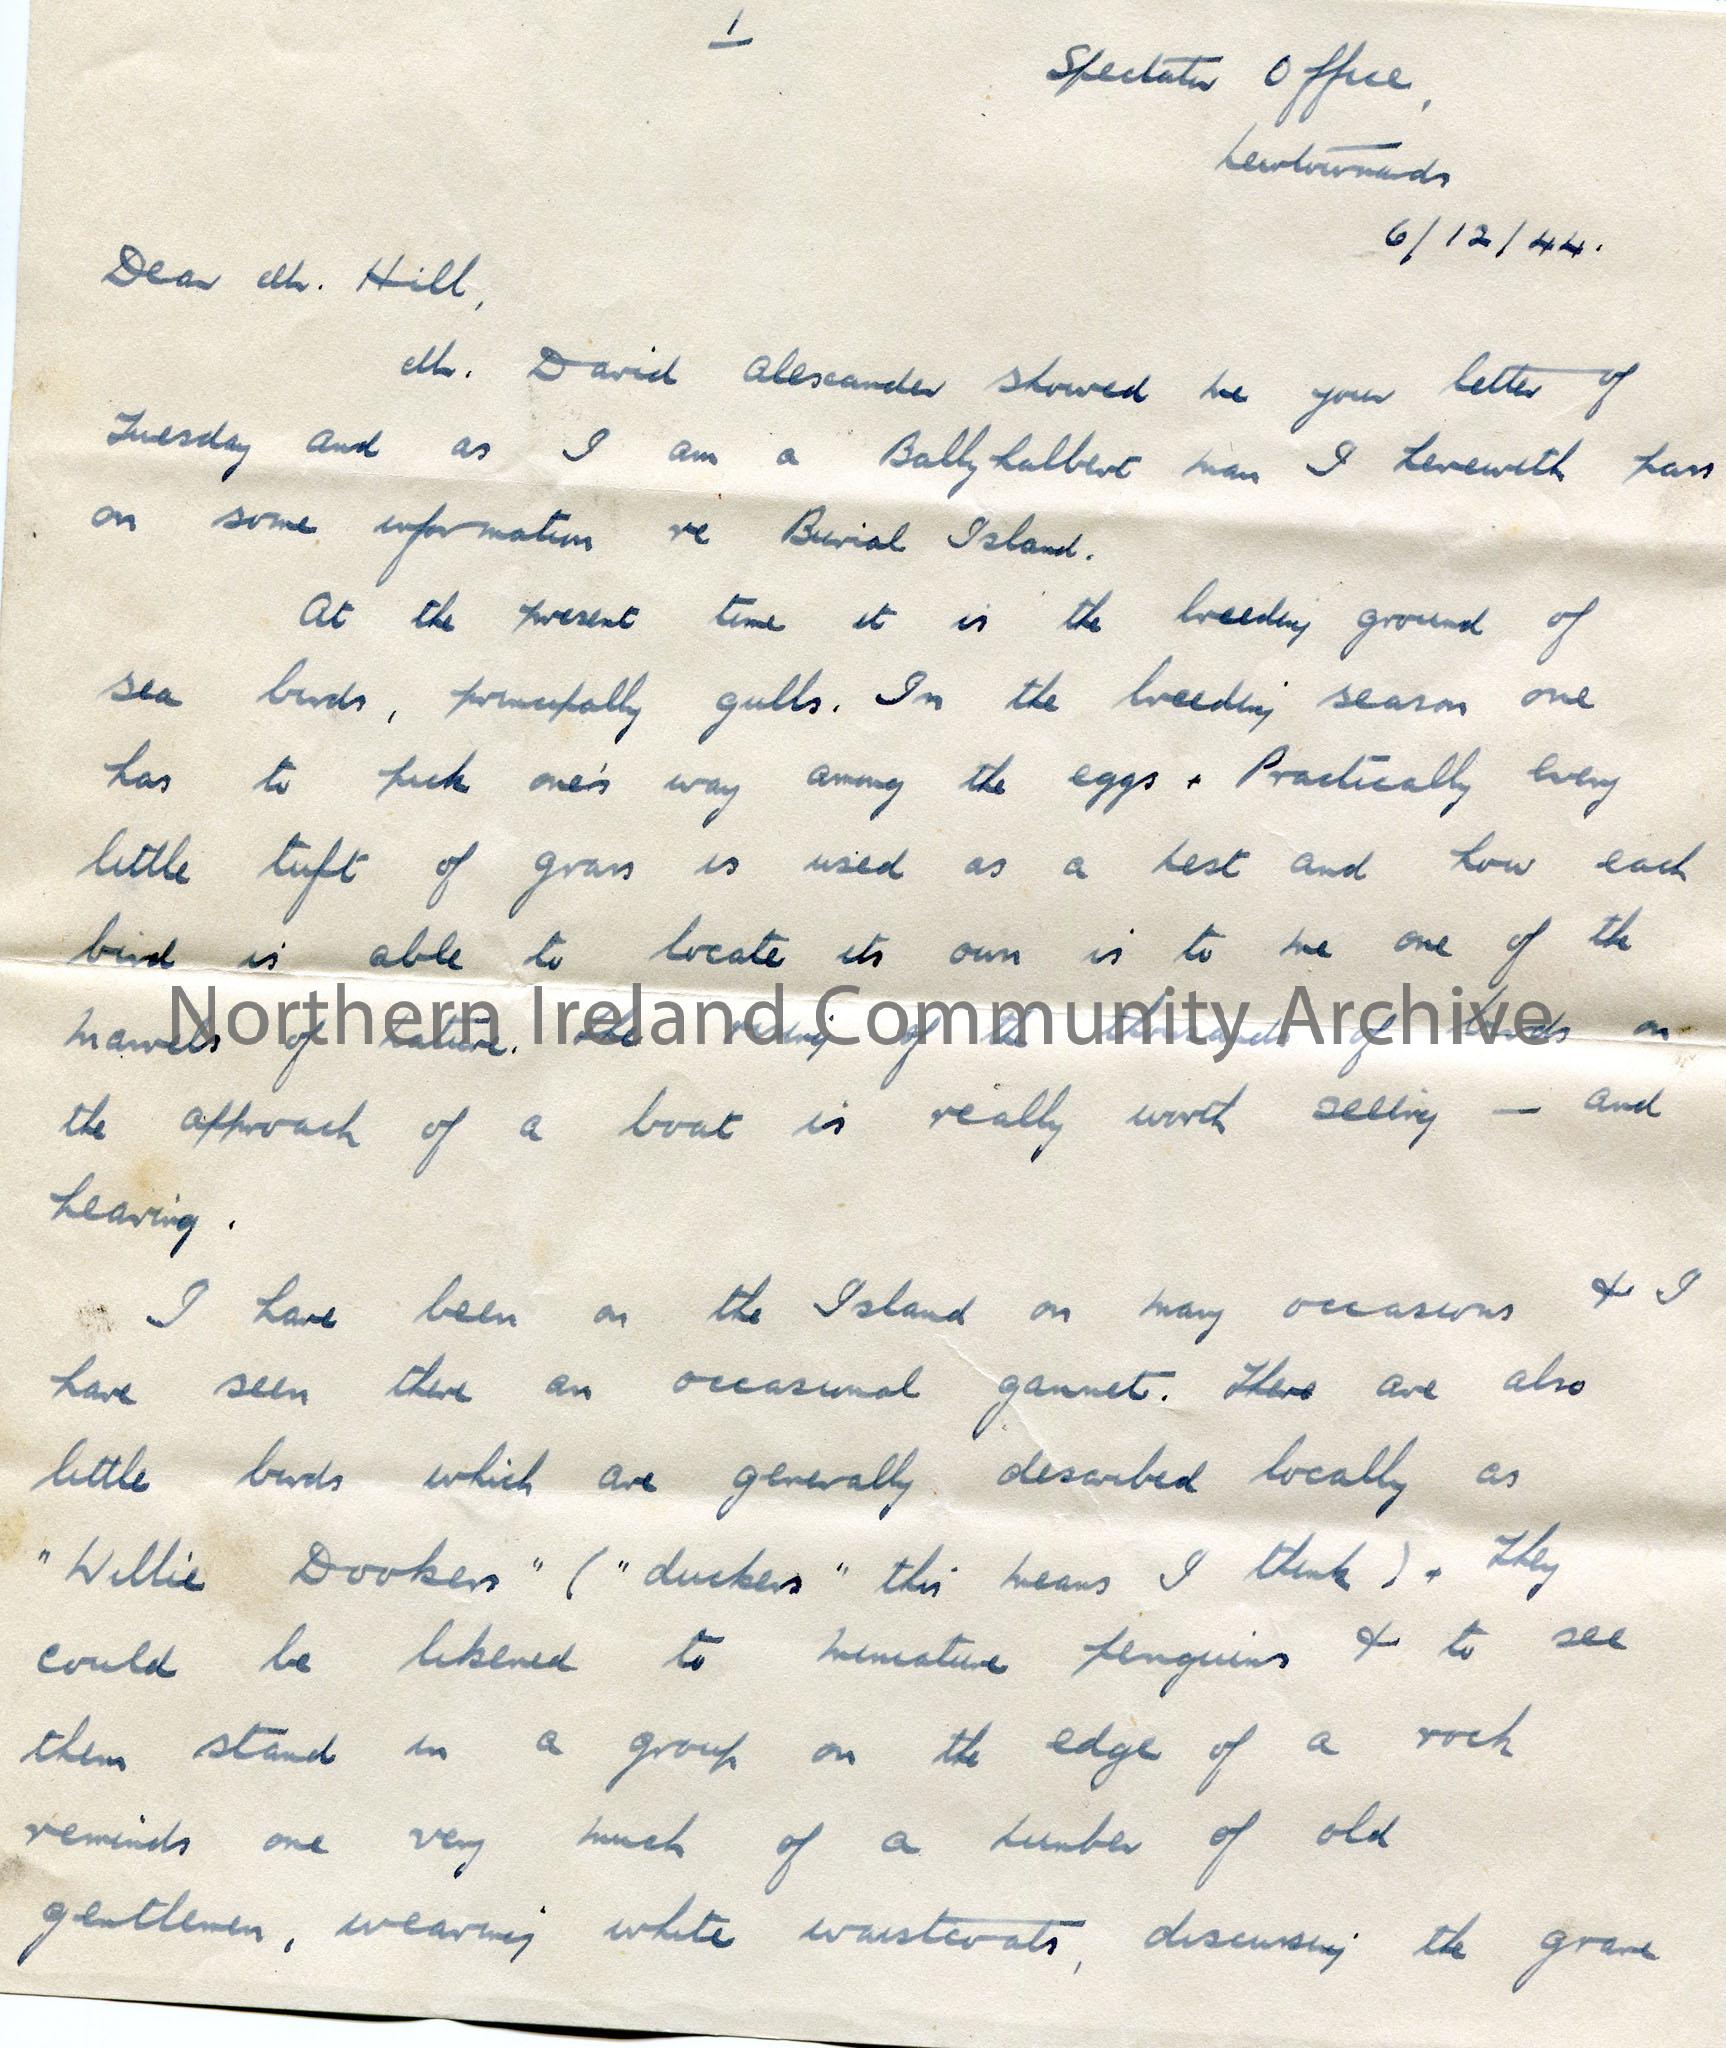 1
Spectator Office,
Newtownards
6/12/44.
Dear Mr. Hill,
Mr. David Alexander showed me your letter of
Tuesday and as I am a Ballyhalbert man I herewith pass
on some information re Burial Island.
At the present time it is the breeding ground of
sea birds, principally gulls. In the breeding season one
has to pick one's way among the eggs. Practically every
little tuft of grass is used as a nest and how each
bird is able to locate its own is to me one of the
marvels of nature. The rising of the thousands of birds on
Northern Ireland Community Archive
the approach of a boat is really worth seeing — and
hearing.
I have been on the Island on many occasions & I
have seen there an occasional gannet. There are also
little birds which are generally described locally as
"Willie Dookers" ("duckers" this means I think). They
could be likened to miniature penguins & to see
them stand in a group on the edge of a rock
reminds one very much of a number of old
gentlemen, wearing white waistcoats, discussing the grave